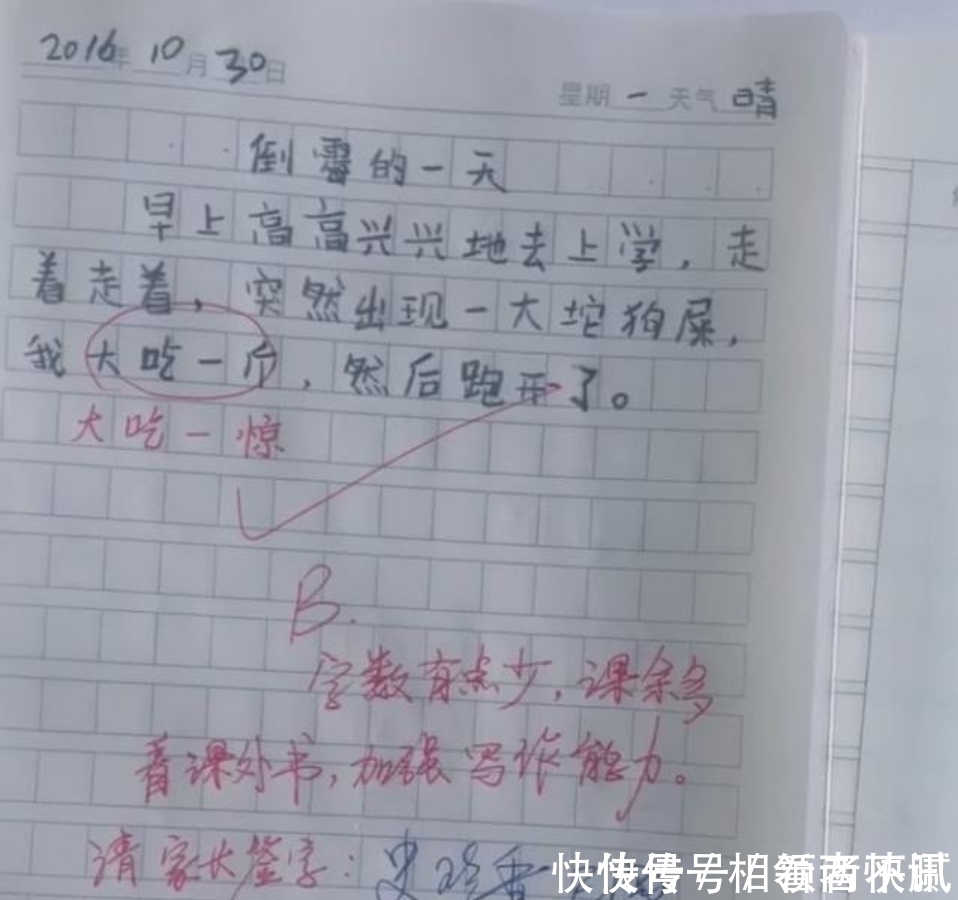 2016年 10月 30日
星期 一 天气 晴
倒霉的一天
早上高高兴兴地去上学，走
着走着，突然出现一大坨狗屎，
我大吃一斤，然后跑开了。
大吃一惊
B.
字数有点少，课余多
看课外书，加强写作能力。
请家长签字：史珍香
快传号/